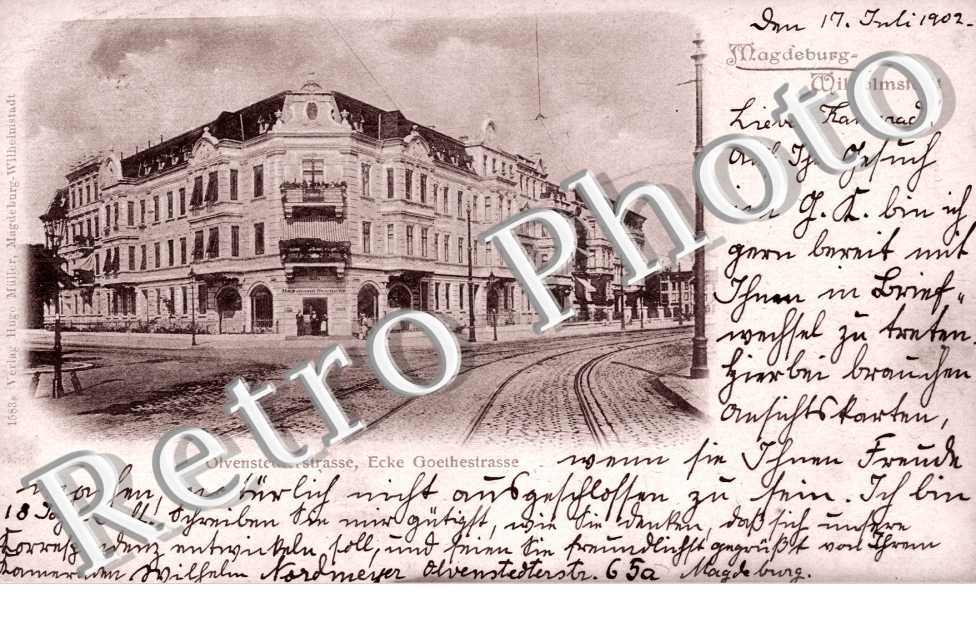 Den 17. Juli 1902.
Magdeburg-
Wilhelmstadt
Lieber Kamerad,
Auf Ihr Gesuch
im J. K. bin ich
gern bereit mit
Ihnen in Brief„
wechsel zu treten.
Hierbei brauchen
Ansichtskarten,
wenn sie Ihnen Freude
machen, natürlich nicht ausgeschlossen zu sein. Ich bin
18 Jahre alt. Schreiben Sie mir gütigst, wie Sie denken, daß sich unsere
Correspondenz entwickeln soll, und seien Sie freundlichst gegrüßt von Ihrem
Kameraden Wilhelm Nordmeyer Olvenstedterstr. 65a Magdeburg.
Olvenstedterstrasse, Ecke Goethestrasse
1583a Verlag Hugo Müller, Magdeburg-Wilhelmstadt
Retro Photo